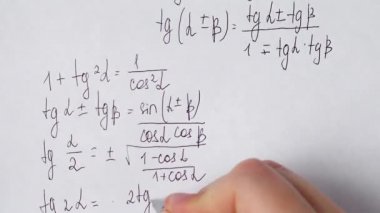 tg(α ± β) = (tgα ± tgβ)/(1 ∓ tgα · tgβ)
1 + tg²α = 1/cos²α
tgα ± tgβ = sin(α ± β)/(cosα cosβ)
tg α/2 = ± √((1 - cosα)/(1 + cosα))
tg2α = 2tg